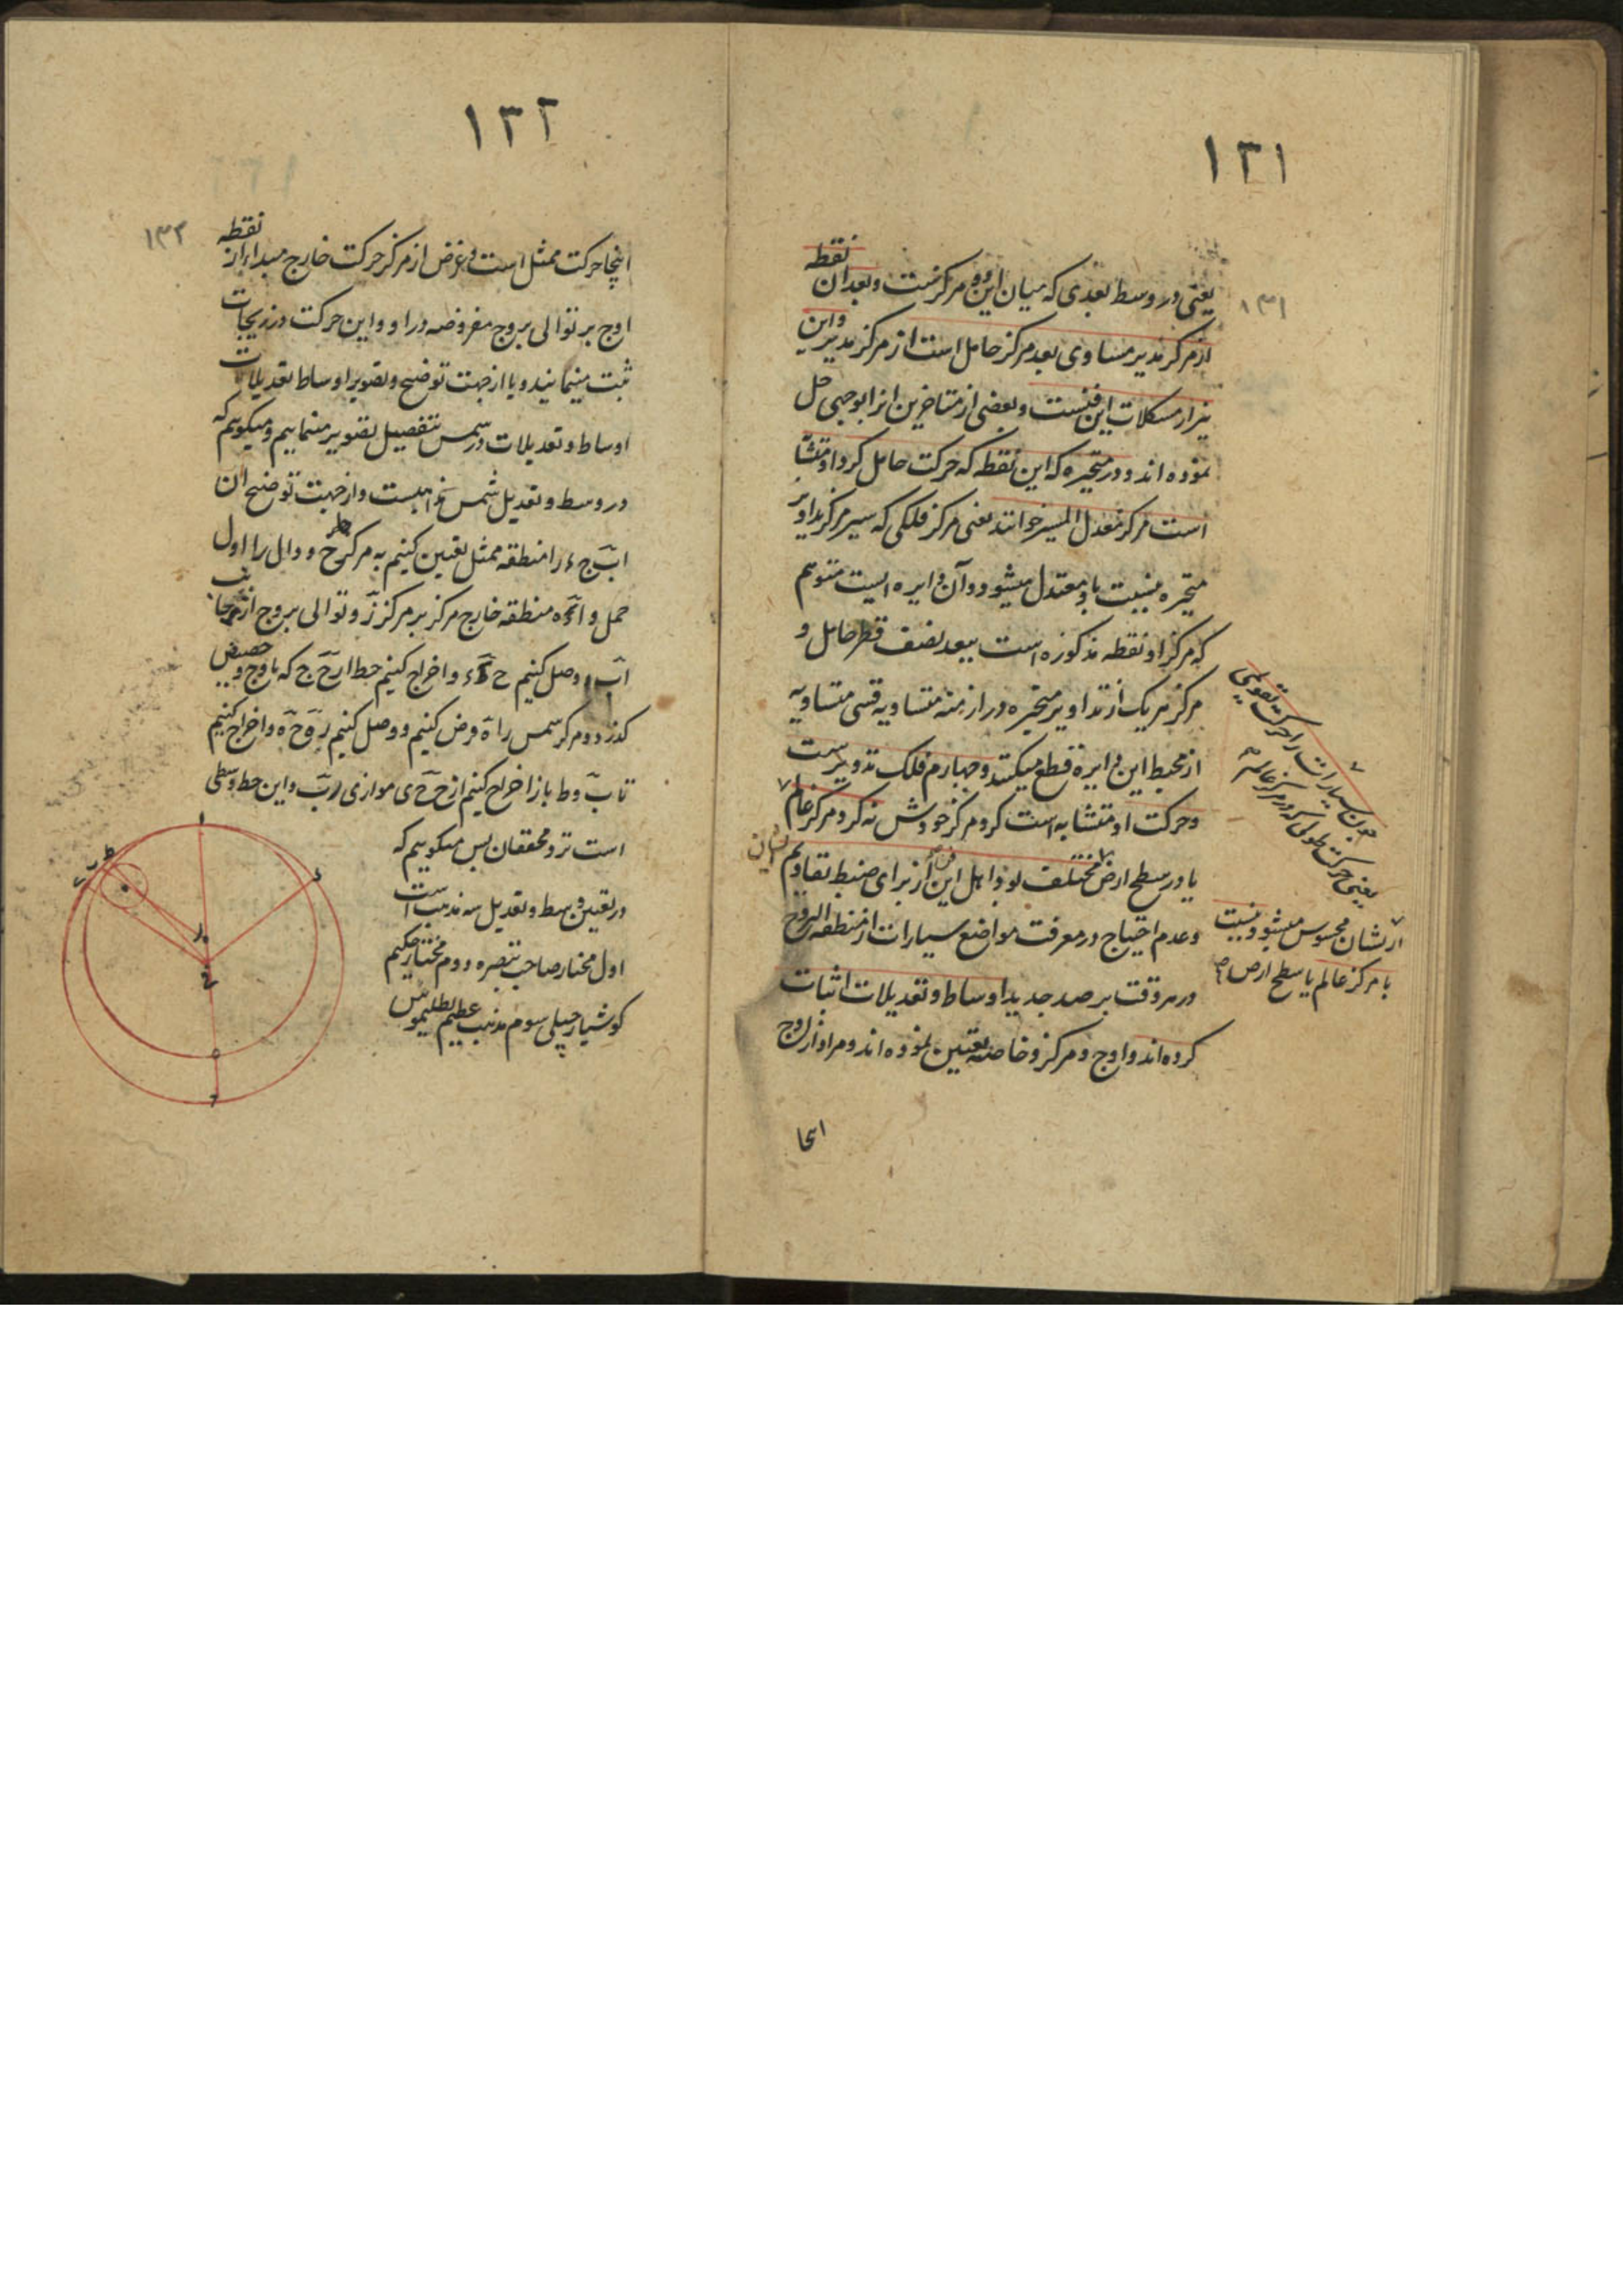 ۱۳۱
۱۳۱
یعنی در وسط بعدی که میان این دو مرکز است و بعد آن نقطه
از مرکز مدیر مساوی بعد مرکز حامل است از مرکز مدیر و این
نیز از مشکلات این فنست و بعضی از متأخرین انرا بوجهی حل
نموده اند و در متحیره که این نقطه که حرکت حامل کرد او متشابه
است مرکز معدل المسیر خوانند یعنی مرکز فلکی که سیر مرکز تداویر
متحیره بنسبت باو معتدل میشود و آن دایره ایست متوهم
که مرکز او نقطه مذکوره است ببعد نصف قطر حامل و
مرکز هر یک از تداویر متحیره در ازمنه متساویه قسی متساویه
از محیط این دایره قطع میکنند و چهارم فلک تدویرست
و حرکت او متشابه است کرد مرکز خودش نه کرد مرکز عالم
یا در سطح ارض مختلف بود اهل این فن از برای ضبط تقاویم ایشان
و عدم احتیاج در معرفت مواضع سیارات از منطقه البروج
در هر وقت برصد جدید اوساط و تعدیلات اثبات
کرده اند و اوج و مرکز و خاصه تعیین نموده اند و مراد از اوج
اینجا
چون سیارات را حرکت تقویمی
یعنی حرکت طولی که در مرکز عالم
از نشان محسوس میشود و نسبت
با مرکز عالم یا سطح ارض
۱۳۲
۱۳۲
اینجا حرکت ممثل است و غرض از مرکز حرکت خارج مبدا از نقطه
اوج بر توالی بروج مفروضه در او و این حرکت در زیجات
ثبت مینمایند و یا از جهت توضیح و تصویر اوساط تعدیلات
اوساط و تعدیلات در شمس بتفصیل تصویر مینماییم و میکوییم که
در وسط و تعدیل شمس مذاهبست و از جهت توضیح ان
اب ج ء را منطقه ممثل تعیین کنیم به مرکز ح و دال را اول
حمل و منطقه خارج مرکز بر مرکز ز و توالی بروج از جانب
اب و وصل کنیم ح ء و اخراج کنیم خط ا ز ح ج که باوج و حضیض
کذرد و مرکز شمس را ه فرض کنیم و وصل کنیم ز ه ح ه و اخراج کنیم
تا ب و ط باز اخراج کنیم از ح ح ی موازی ز ب و این خط وسطی
است نزد محققان پس میکوییم که
در تعیین وسط و تعدیل سه مذهب است
اول مختار صاحب تبصره دوم مختار حکیم
کوشیار جیلی سوم مذهب عظیم بطلیموس